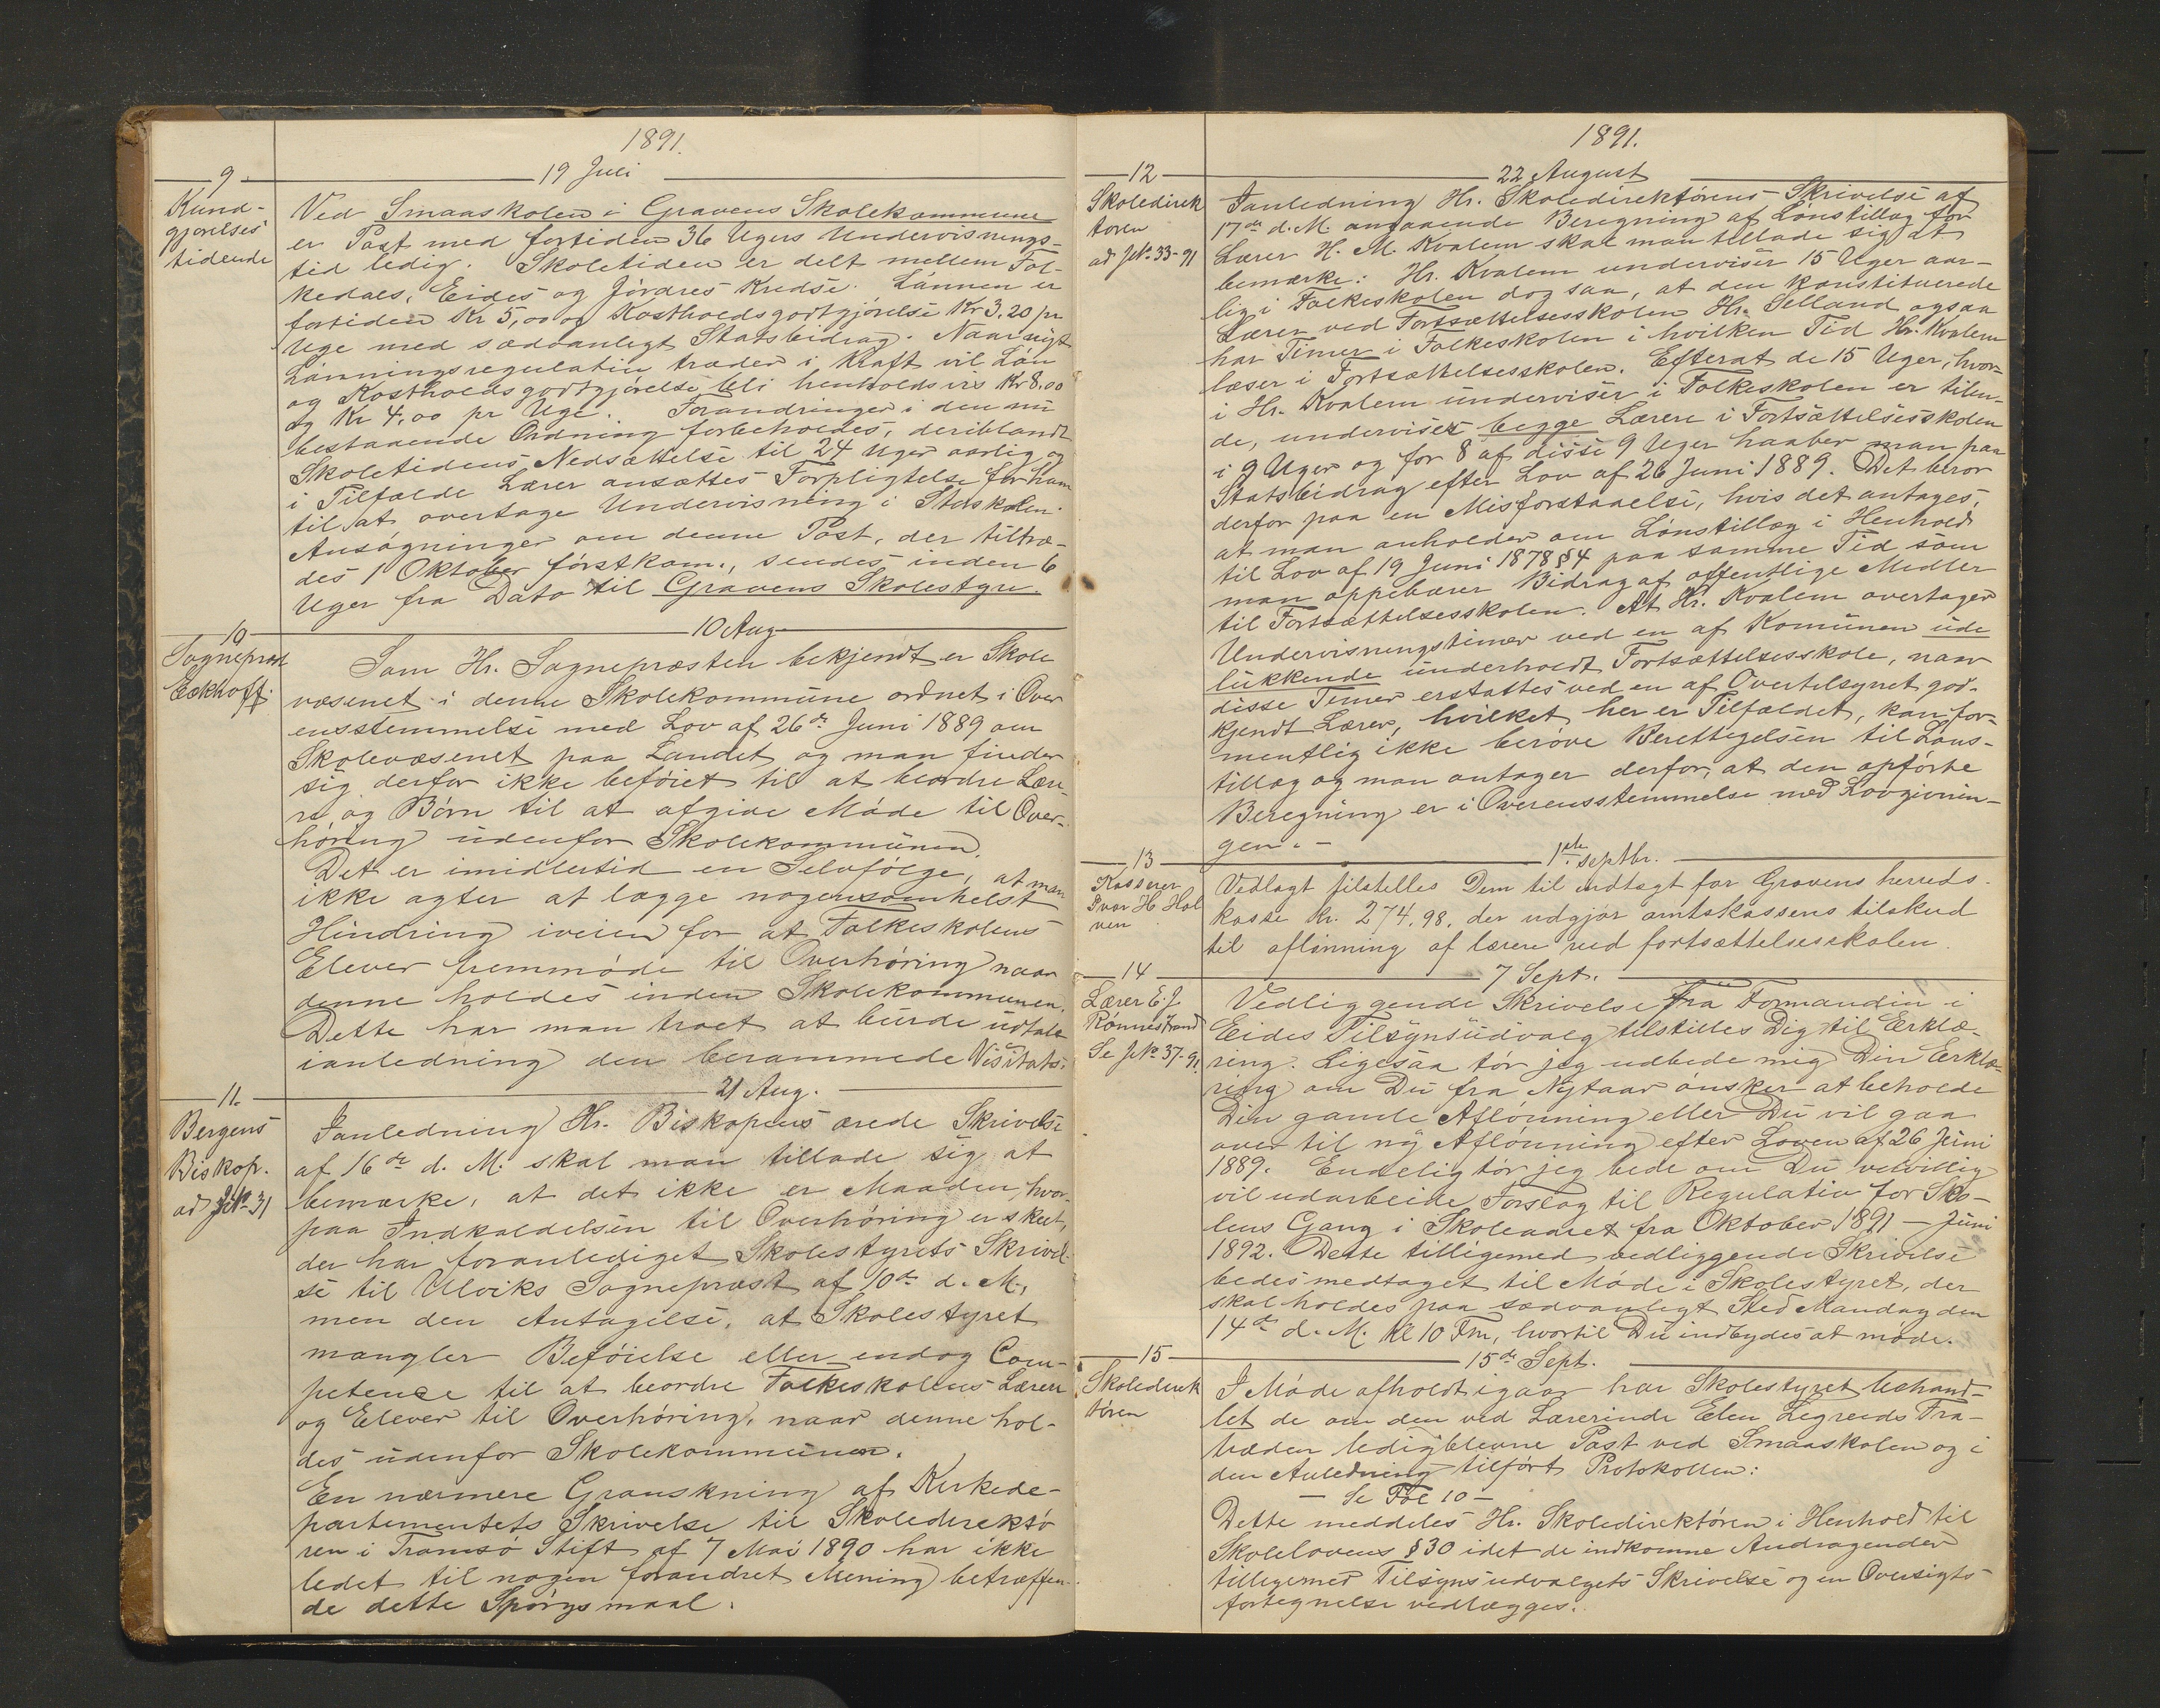 1891.
9
19 Juli
Kund-
gjørelses
tidende
Ved Smaaskolen i Gravens Skolekommune
er Post med fortiden 36 Ugers Undervisnings-
tid ledig. Skoletiden er delt mellem Fol-
kedals, Eides og Jördres Kredse. Lönnen er
fortiden Kr 5,00 og Kostholdsgodtgjörelse Kr 3.20 pr
Uge med sædvanligt Statsbidrag. Naar nyt
Lönningsregulativ træder i Kraft vil Lön
og Kostholdsgodtgjörelse bli henholdsvis Kr 8.00
og Kr 4,00 pr Uge. Forandringer i den nu
bestaaende Ordning forbeholdes, deriblandt
Skoletidens Nedsættelse til 24 Uger aarlig og
i Tilfælde Lærer ansættes Forpligtelse for ham
til at overtage Undervisning i Storskolen.
Ansögninger om denne Post, der tiltræ-
des 1 Oktober förstkom., sendes inden 6
Uger fra Dato til Gravens Skolestyre.
10
10 Aug
Sognepræst
Eckhoff.
Som Hr. Sognepræsten bekjendt er Skole
væsenet i denne Skolekommune ordnet i Over
ensstemmelse med Lov af 26de Juni 1889 om
Skolevæsenet paa Landet og man finder
sig derfor ikke beföiet til at beordre Lære-
re og Börn til at afgive Möde til Over-
höring udenfor Skolekommunen.
Det er imidlertid en Selvfölge, at man
ikke agter at lægge nogensomhelst
Hindring iveien for at Folkeskolens
Elever fremmöde til Overhöring naar
denne holdes inden Skolekommunen.
Dette har man troet at burde udtale
ianledning den berammede Visitats.
11.
21 Aug.
Bergens
Biskop.
ad JNo 31
Ianledning Hr. Biskopens ærede Skrivelse
af 16de d. M. skal man tillade sig at
bemærke, at det ikke er Maaden, hvor-
paa Indkaldelsen til Overhöring er skeet,
der har foranlediget Skolestyrets Skrivel-
se til Ulviks Sognepræst af 10de d. M.,
men den Antagelse, at Skolestyret
mangler Beföielse eller endog Com-
petence til at beordre Folkeskolens Lærere
og Elever til Overhöring, naar denne hol-
des udenfor Skolekommunen.
En nærmere Granskning af Kirkede-
partementets Skrivelse til Skoledirektö
ren i Tromsö Stift af 7 Mai 1890 har ikke
ledet til nogen forandret Mening betræffen-
de dette Spörgsmaal.
1891.
12
22 August
Skoledirek
toren
ad JNo 33-91
Ianledning Hr. Skoledirektörens Skrivelse af
17de d. M. angaaende Beregning af Lönstillæg for
Lærer H. M. Kvalem skal man tillade sig at
bemærke: Hr. Kvalem underviser 15 Uger aar-
lig i Folkeskolen dog saa, at den konstituerede
Lærer ved Fortsættelsesskolen Hr. Selland ogsaa
har Timer i Folkeskolen i hvilken Tid Hr. Kvalem
læser i Fortsættelsesskolen. Efterat de 15 Uger, hvor-
i Hr. Kvalem underviser i Folkeskolen er tilen-
de, underviser begge Lærere i Fortsættelsesskolen
i 9 Uger og for 8 af disse 9 Uger haaber man paa
Statsbidrag efter Lov af 26 Juni 1889. Det beror
derfor paa en Misforstaaelse, hvis det antages,
at man anholder om Lönstillæg i Henhold
til Lov af 19 Juni 1878 § 4 paa samme Tid som
man oppebærer Bidrag af offentlige Midler
til Fortsættelsesskolen. At Hr. Kvalem overtager
Undervisningstimer ved en af Komunen ude
lukkende underholdt Fortsættelsesskole, naar
disse Timer erstattes ved en af Overtilsynet god-
kjendt Lærer, hvilket her er Tilfældet, kan for-
mentlig ikke beröve Berettigelsen til Löns-
tillæg og man antager derfor, at den opförte
Beregning er i Overensstemmelse med Lovgivnin-
gen. -
13
1ste septbr.
Kasserer
Ivar H. Hol
ven
Vedlagt tilstilles Dem til indtægt for Gravens herreds-
kasse kr. 274.98, der udgjør amtskassens tilskud
til aflønning af lærere ved fortsættelsesskolen.
14
7 Sept.
Lærer E. J.
Rönnestrand
Se JNo 37-91.
Vedliggende Skrivelse fra Formanden i
Eides Tilsynsudvalg tilstilles Dig til Erklæ-
ring. Ligesaa tör jeg udbede mig Din Erklæ-
ring om Du fra Nytaar önsker at beholde
Din gamle Aflönning eller Du vil gaa
over til ny Aflönning efter Loven af 26 Juni
1889. Endelig tör jeg bede om Du velvillig
vil udarbeide Forslag til Regulativ for Sko-
lens Gang i Skoleaaret fra Oktober 1891 – Juni
1892. Dette tilligemed vedliggende Skrivelse
bedes medtaget til Möde i Skolestyret, der
skal holdes paa sædvanligt Sted Mandag den
14de d. M. Kl 10 Fm, hvortil Du indbydes at möde.
15
15de Sept.
Skoledirek
tören
I Möde afholdt igaar har Skolestyret behand-
let de om den ved Lærerinde Elen Legreids Fra-
træden ledigblevne Post ved Smaaskolen og i
den Anledning tilfört Protokollen:
– Se Fol 10 –
Dette meddeles Hr. Skoledirektören i Henhold til
Skolelovens § 30 idet de indkomne Andragender
tilligemed Tilsynsudvalgets Skrivelse og en Oversigts-
fortegnelse vedlægges.